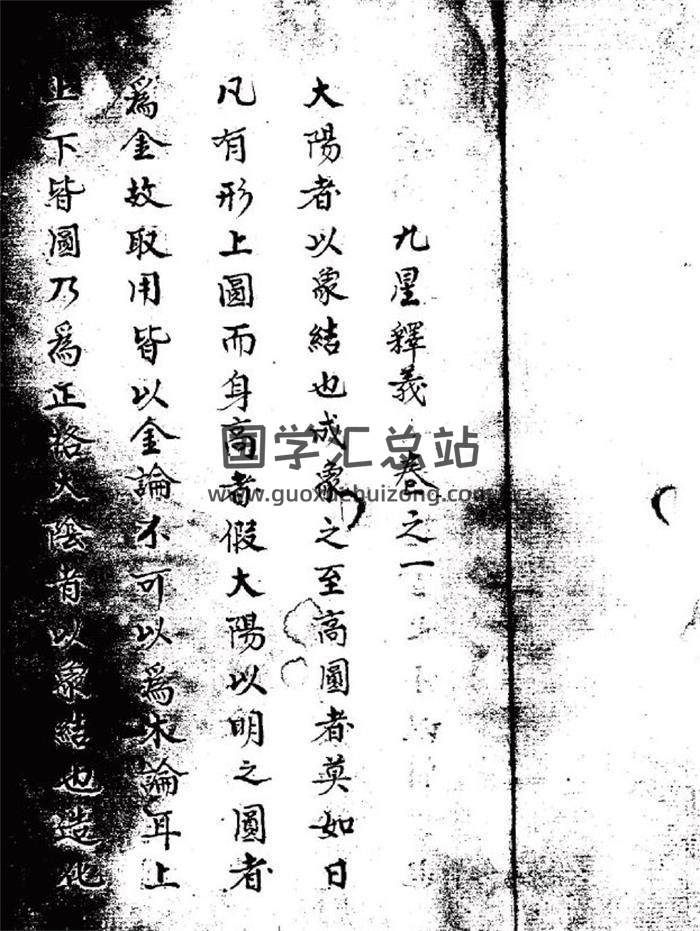 九星釋義卷之一
大陽者以象結也成象之至高圓者莫如日
凡有形上圓而身高者假大陽以明之圓者
爲金故取用皆以金論不可以爲木論耳上
上下皆圓乃爲正格大陰者以象結也造化
国学汇总站
www.guoxuehuizong.com